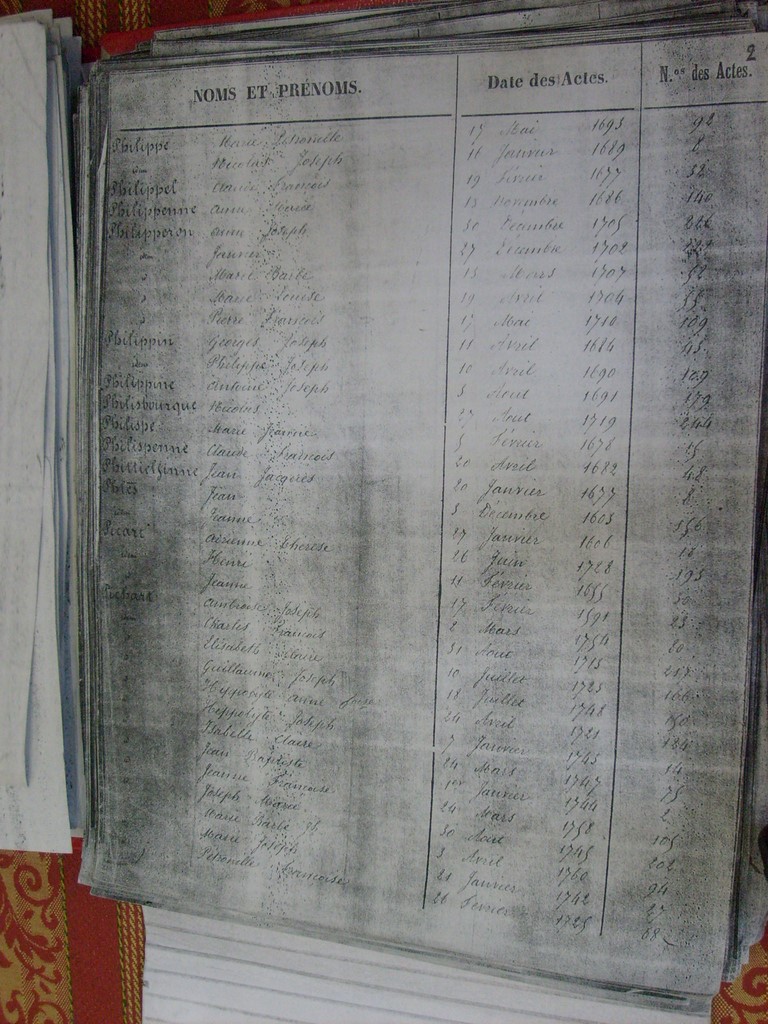 2
NOMS ET PRÉNOMS. Date des Actes. N.os des Actes.
Philippe Marie Petronille 17 Mai 1693 92
Nicolas Joseph 16 Janvier 1689 8
Philippel Marie François 19 Février 1677 32
Philippenne Anne Marie 13 Novembre 1686 140
Philipperon Anne Joseph 30 Décembre 1705 226
" 27 Décembre 1702
" Marie Barbe 15 Mars 1707 52
" Marie Louise 19 Avril 1704 55
" Pierre François 17 Mai 1710 109
Philippin Georges Joseph 11 Avril 1684 45
Philippe Joseph 10 Avril 1690 109
Philippine Antoine Joseph 5 Aout 1691 179
Philisbourque Nicolas 27 Aout 1719 244
Philispe Marie Jeanne 5 Février 1678 15
Philispenne Claude François 20 Avril 1682 48
Jean Jacques 20 Janvier 1677 8
Jean 5 Décembre 1605 156
Jeanne 27 Janvier 1606 18
Picart Adrienne Therese 26 Juin 1728 193
Henri 11 Février 1655
Jeanne 17 Février 1591 23
Ambroise Joseph 2 Mars 1754 80
" Charles François 31 Aout 1715 257
" Elisabeth Claire 10 Juillet 1725 166
" Guillaume Joseph 18 Juillet 1748
" Hippolyte Anne 24 Avril 1721 124
" Hippolyte Joseph 7 Janvier 1745 14
" Isabelle Claire 24 Mars 1747 75
" Jean Baptiste 1er Janvier 1744 2
" Jeanne Françoise 24 Mars 1758 105
" Joseph Marie 30 Aout 1745 202
" Marie Barbe Jh 3 Avril 1760 94
" Marie Joseph 21 Janvier 1742 27
" Petronille Françoise 26 Février 1725 68